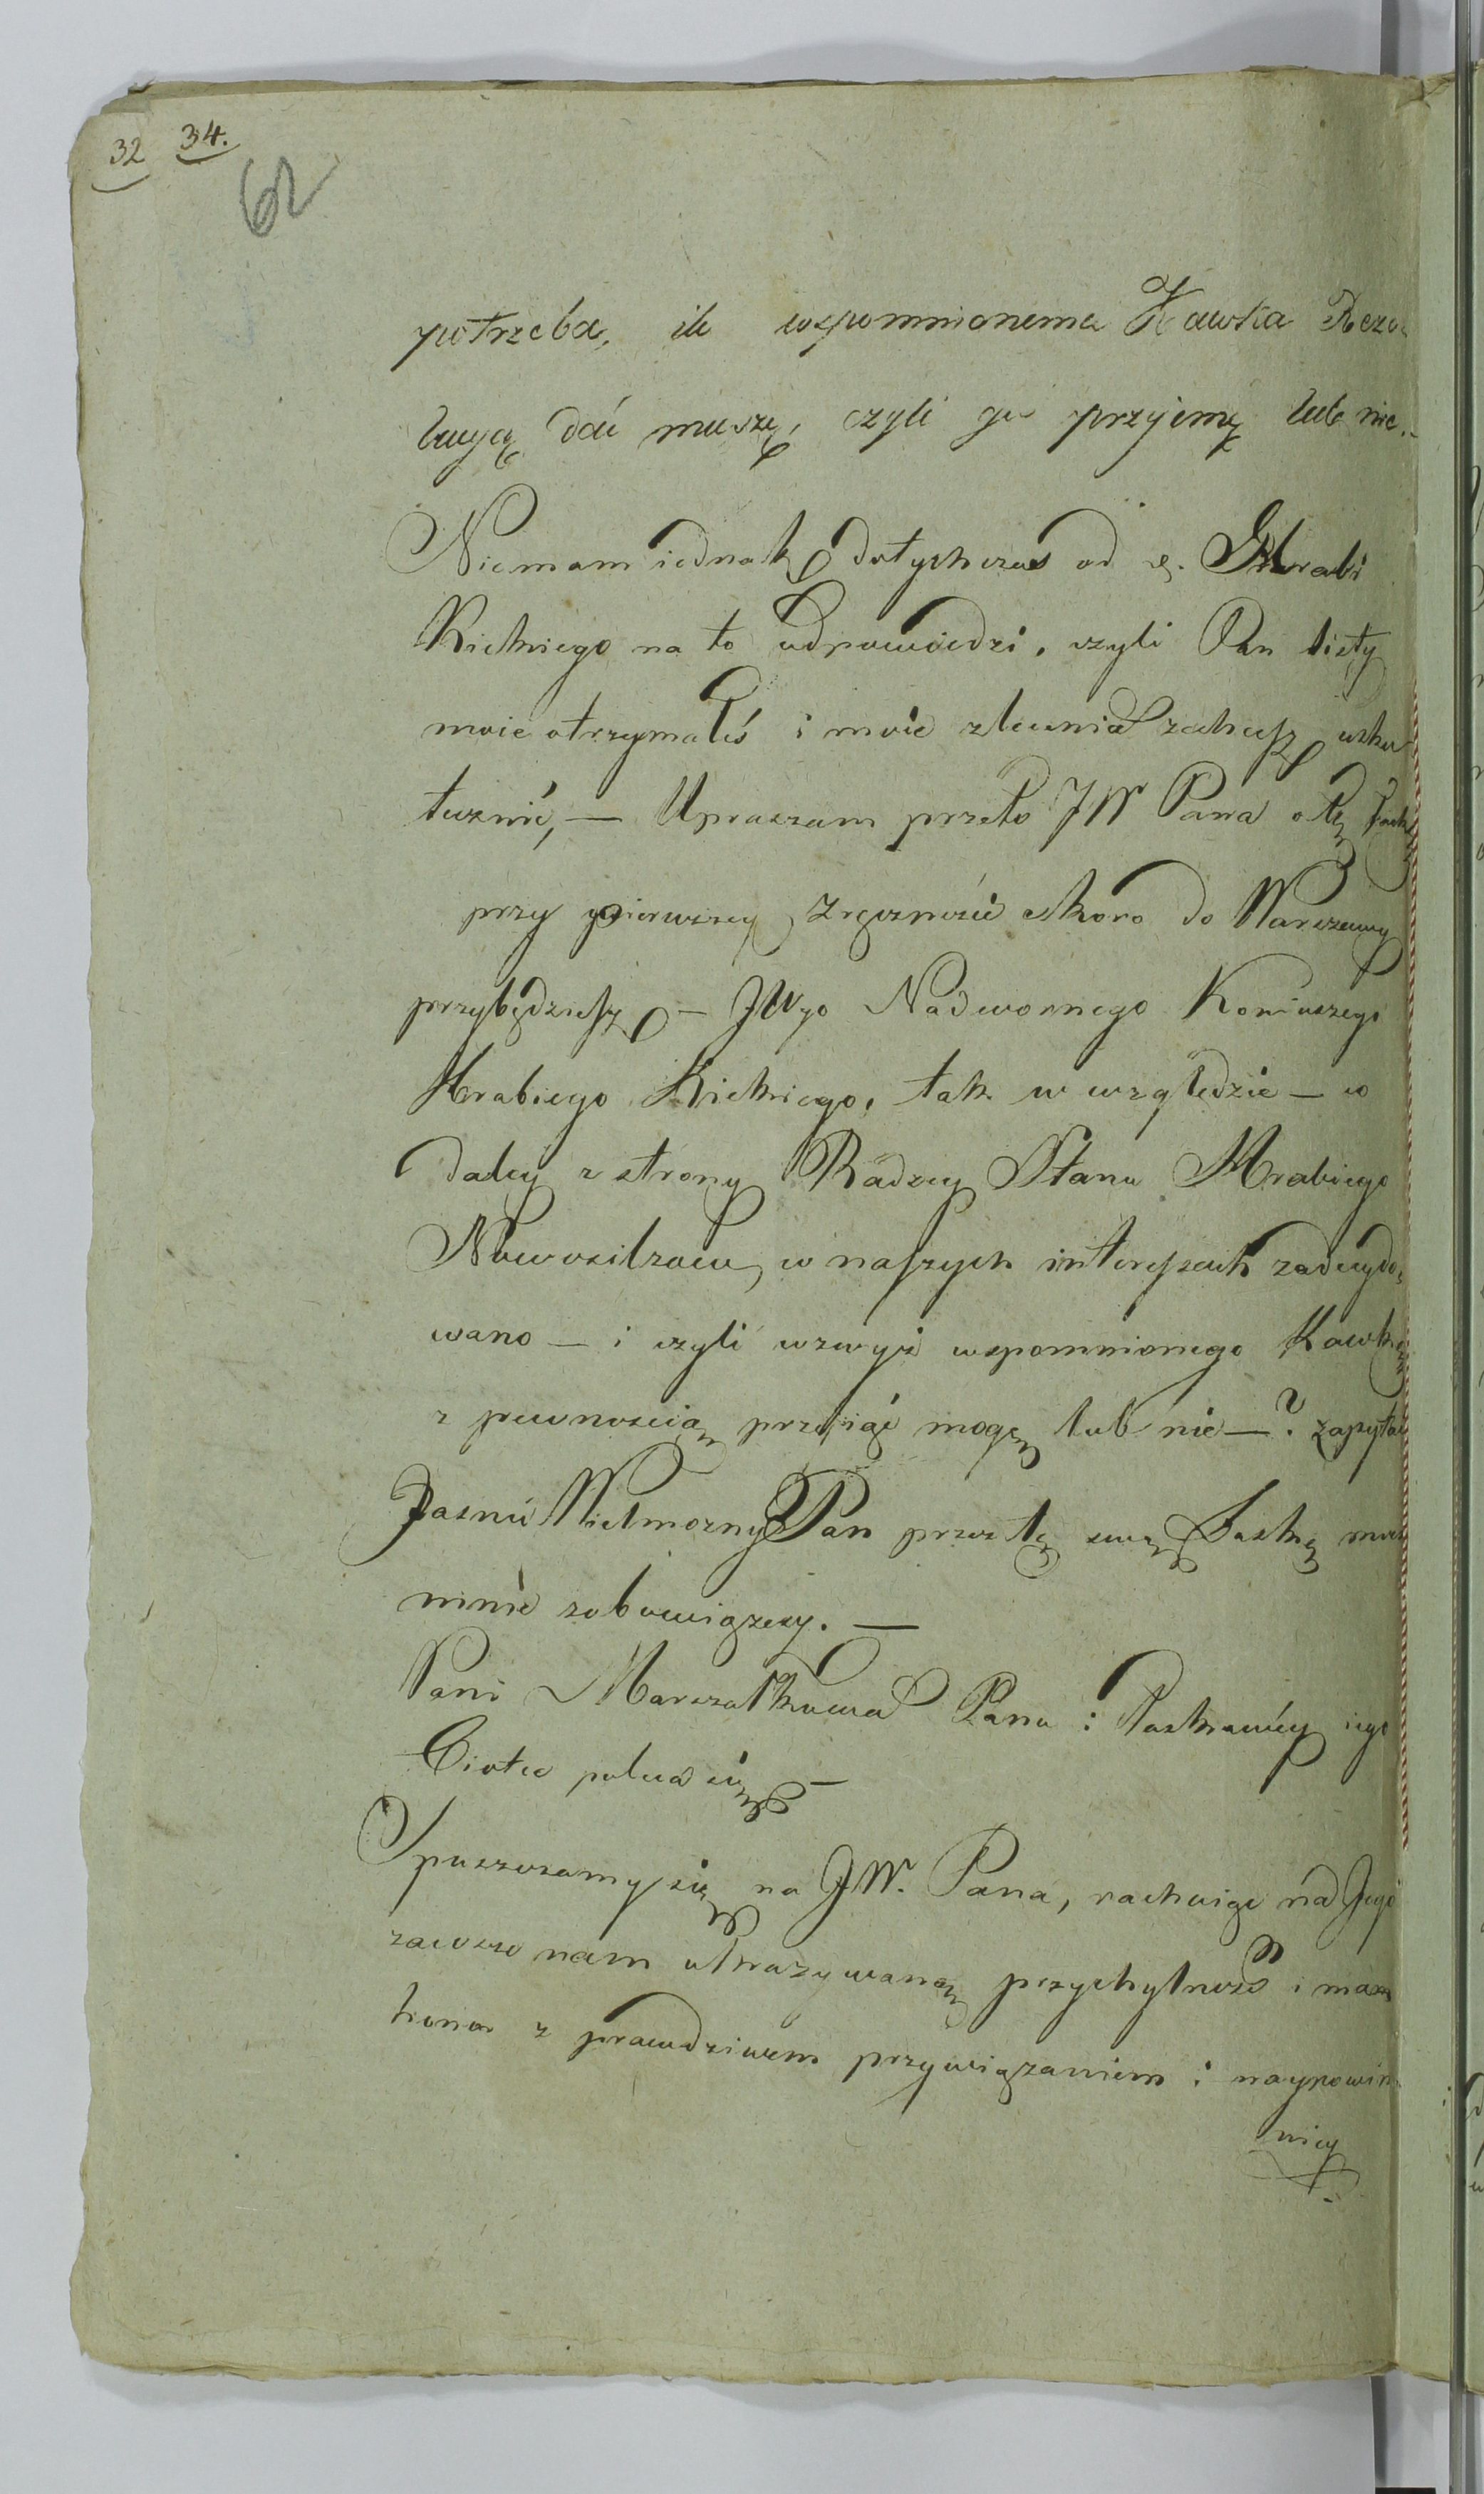 32 34.
62
potrzeba, ile wspomnionemu Kawka Rezo-
lucyą dać muszę, czyli go przyjemę lub nie.-
Niemam iednak dotychczas od Hrabi
Kickiego na to odpowiedzi, czyli Pan listy
moie otrzymałeś i moie zlecenia zechcesz usku
tecznić, — Upraszam przeto JW Pana o tę Łaskę
przy pierwszey zręczności skoro do Warszawy
przybędziesz — JWgo Nadwornego Koniuszego
Hrabiego Kickiego, tak w względzie — co
daley z strony Radzcy Stanu Hrabiego
Nowosilzow, w naszych interessach zadecydo-
wano — i czyli wzwyż wspomnionego Kawkę
z pewnoscią przyiąć mogę lub nie — ? zapytać
Jasnie Wielmozny Pan przez tę swą Łaskę
mnie zobowiązesz. —
Pani Marszałkowa Panu i Łaskawey iego
Ciotce poleca się —
Spuszczamy się na JW. Pana, rachuiąc na Jego
zawsze nam okazywaną przychylność i mam
honor z prawdziwem przywiązaniem i naypowin
niey